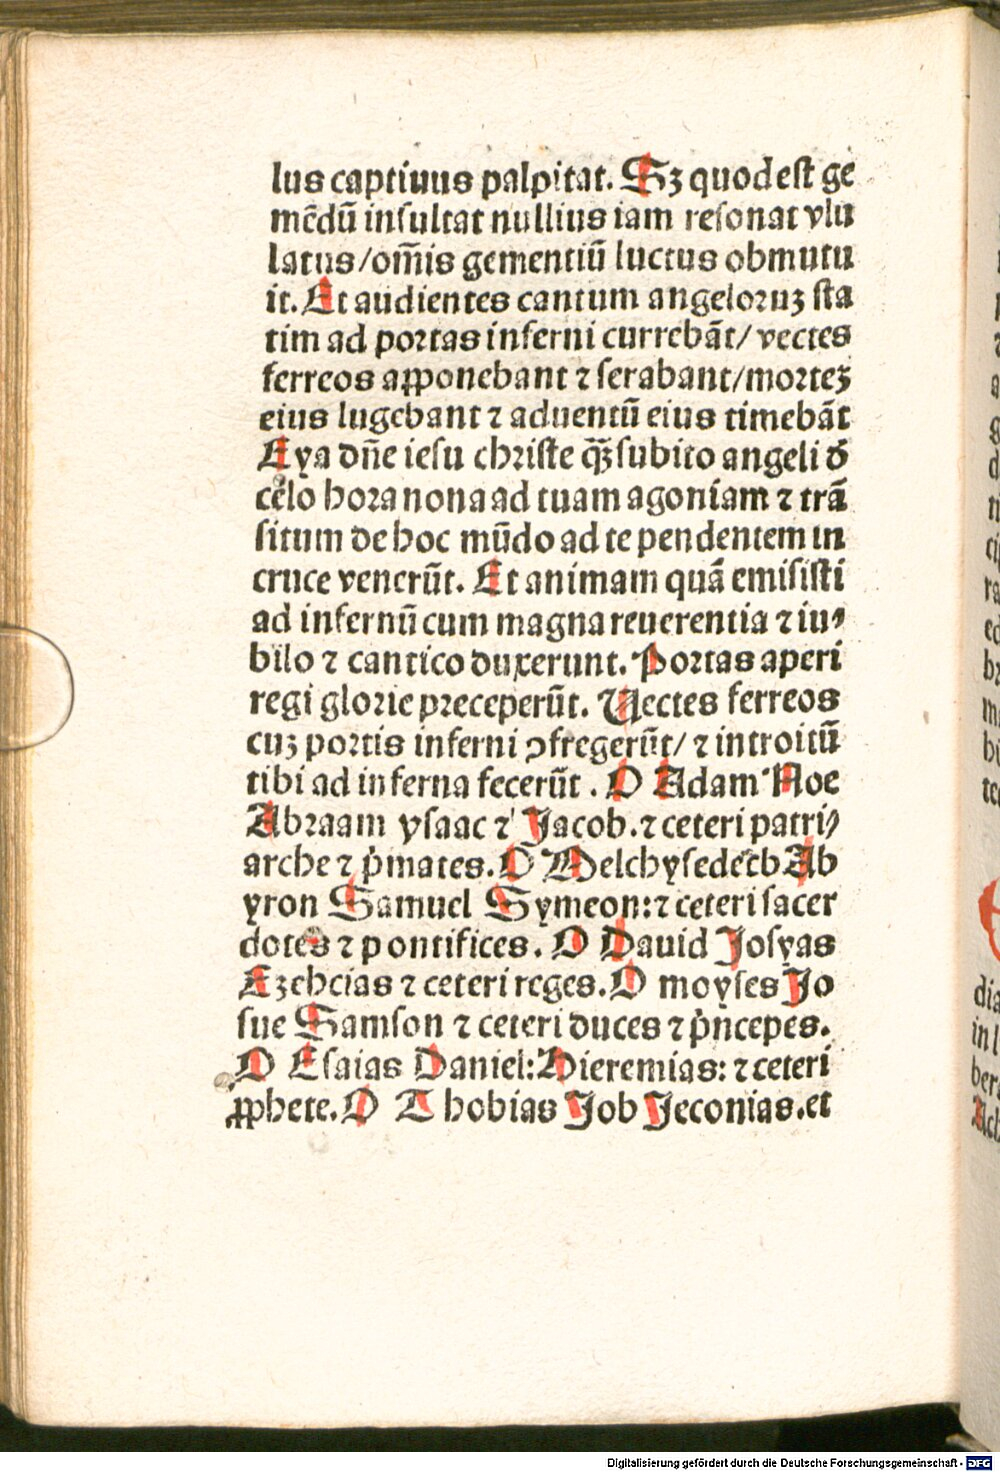 lus captiuus palpitat. Sꝫ quod est ge
mēdū insultat nullius iam resonat vlu
latus/om̄is gementiū luctus obmutu
it. Et audientes cantum angeloruꝫ sta
tim ad portas inferni currebāt/ vectes
ferreos apponebant ⁊ serabant/morteꝫ
eius lugebant ⁊ aduentū eius timebāt
Eya dn̄e iesu christe qꝫ̄ subito angeli d̄
celo hora nona ad tuam agoniam ⁊ trā
situm de hoc mūdo ad te pendentem in
cruce venerūt. Et animam quā emisisti
ad infernū cum magna reuerentia ⁊ iu⸗
bilo ⁊ cantico duxerunt. Portas aperi
regi glorie preceperūt. Uectes ferreos
cuꝫ portis inferni ꝯfregerūt/ ⁊ introitū
tibi ad inferna fecerūt. O Adam Noe
Abraam ysaac ⁊ Jacob. ⁊ ceteri patri⸗
arche ⁊ p̍mates. O Melchysedech Ab
yron Samuel Symeon: ⁊ ceteri sacer
dotes ⁊ pontifices. O Dauid Josyas
Ezechias ⁊ ceteri reges. O moyses Jo
sue Samson ⁊ ceteri duces ⁊ p̍ncepes.
O Esaias Daniel: Hieremias: ⁊ ceteri
ꝓphete. O Thobias Job Jeconias. et
Digitalisierung gefördert durch die Deutsche Forschungsgemeinschaft - DFG